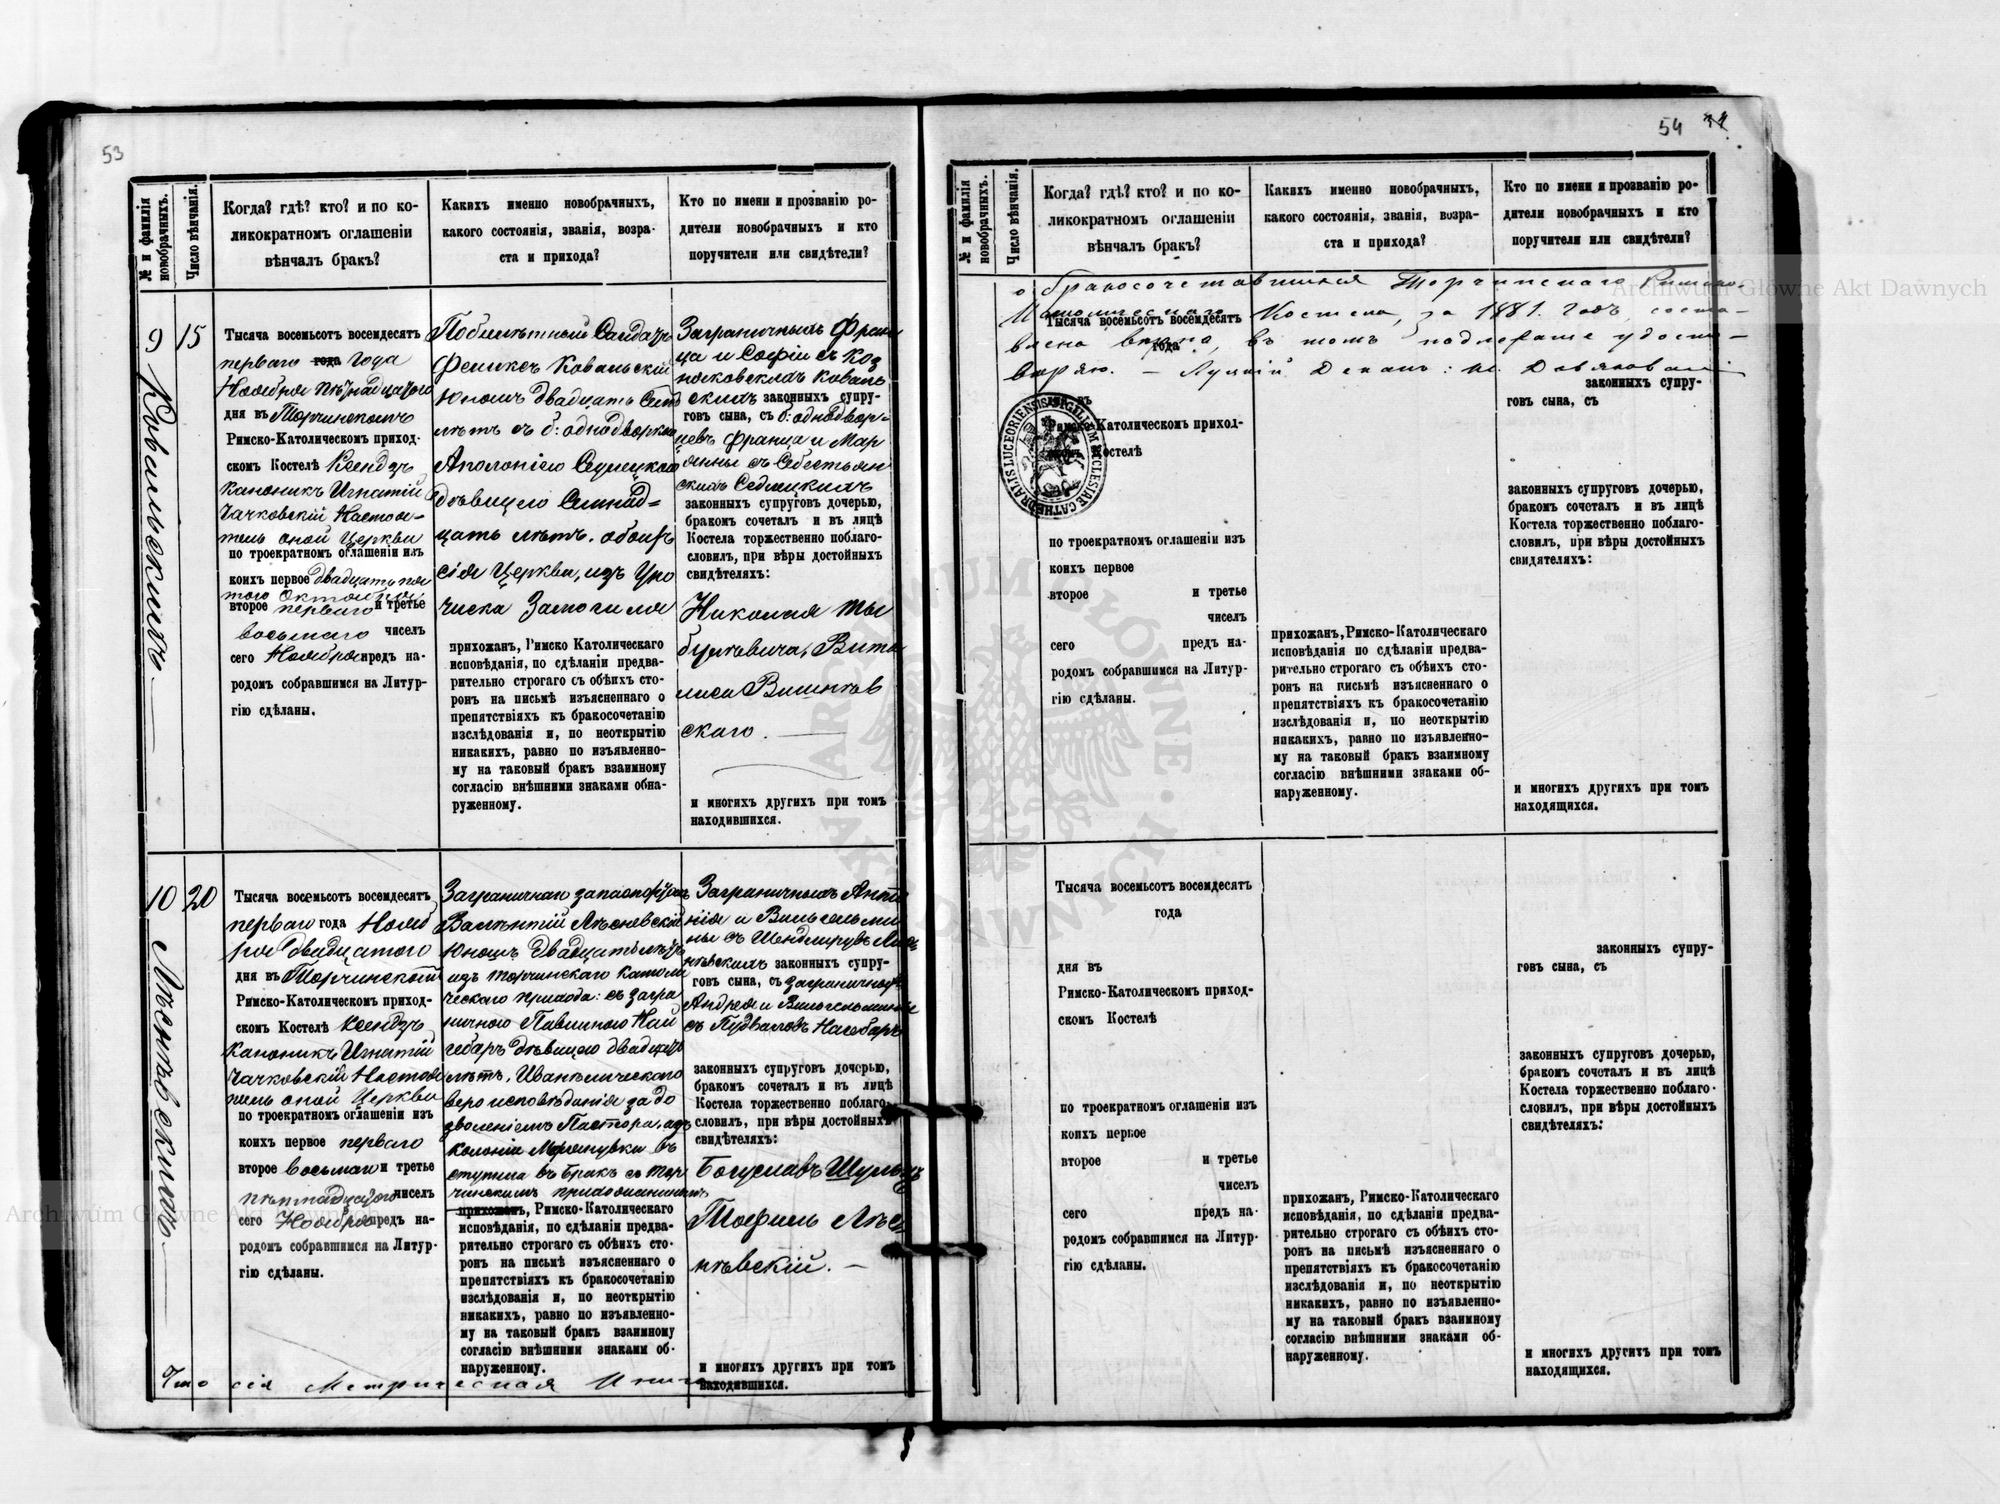 53
№ и фамилія новобрачныхъ.
Число вѣнчанія.
Когда? гдѣ? кто? и по ко-
ликократномъ оглашеніи
вѣнчалъ бракъ?
Какихъ именно новобрачныхъ,
какого состоянія, званія, возра-
ста и прихода?
Кто по имени и прозванію ро-
дители новобрачныхъ и кто
поручители или свидѣтели?
9
15
Тысяча восемьсотъ восемдесятъ
перваго года Года
Ноября пятнадцатого
дня въ Торчинскомъ
Римско-Католическомъ приход-
скомъ Костелѣ Ксендзъ
Каноникъ Игнатій
Чачковскій Настоя-
тель оной Церкви
по троекратномъ оглашеніи изъ
коихъ первое двадцать пя
того Октября
второе перваго и третье
восьмаго чиселъ
сего Ноября предъ на-
родомъ собравшимся на Литур-
гію сдѣланы.
Феликсъ Ковальскій
Юношъ двадцать Семь
лѣтъ съ б: однодворкою
Аполоніею Седлецкою
дѣвицею Семнад-
цать лѣтъ. обоихъ
сія Церкви, изъ Уро
чиска Замогиля
прихожан, Римско Католическаго
исповѣданія, по сдѣланіи предва-
рительно строгаго съ обѣихъ сто-
ронъ на письмѣ изъясненнаго о
препятствіяхъ къ бракосочетанію
изслѣдованія и, по неоткрытію
никакихъ, равно по изъявленно-
му на таковый бракъ взаимному
согласію внѣшними знаками обна-
руженному.
Заграничныхъ Фран
ца и Софіи съ Коз
няковскихъ Коваль
скихъ законныхъ супру-
говъ сына, съ б: однодвор-
цевъ Франца и Мар
янны съ Себестьян
скихъ Седлецкихъ
законныхъ супруговъ дочерью,
бракомъ сочеталъ и въ лицѣ
Костела торжественно поблаго-
словилъ, при вѣры достойныхъ
свидѣтеляхъ:
Николая
Вита
лиса Вишнев
скаго.
и многихъ другихъ при томъ
находившихся.
10
20
Тысяча восемьсотъ восемдесятъ
перваго года Нояб
ря двадцатого
дня въ Торчинской
Римско-Католическомъ приход-
скомъ Костелѣ Ксендзъ
Каноникъ Игнатій
Чачковскій Настоя
тель оной Церкви
по троекратномъ оглашеніи изъ
коихъ первое перваго
второе восьмаго и третье
пятнадцатого чиселъ
сего Ноября предъ на-
родомъ собравшимся на Литур-
гію сдѣланы.
Юношъ двадцать лѣтъ
изъ торчинскаго католи
ческаго прихода: съ загра
ничною Павлиною Най
гебаръ дѣвицею двадцать
лѣтъ. Иванѣлическаго
вероисповѣданія за до
зволеніемъ Пастора, изъ
колоніи Мартыновки въ
ступила въ бракъ съ тор
чинскимъ прихожаниномъ
прихожанъ, Римско-Католическаго
исповѣданія, по сдѣланіи предва-
рительно строгаго съ обѣихъ сто-
ронъ на письмѣ изъясненнаго о
препятствіяхъ къ бракосочетанію
изслѣдованія и, по неоткрытію
никакихъ, равно по изъявленно-
му на таковый бракъ взаимному
согласію внѣшними знаками об-
наруженному.
Заграничныхъ Анто
нія и Вильгельми
ны съ
законныхъ супру-
говъ сына, съ заграничной
Андрея и Вильгельмины
съ Найгебаръ
законныхъ супруговъ дочерью,
бракомъ сочеталъ и въ лицѣ
Костела торжественно поблаго-
словилъ, при вѣры достойныхъ
свидѣтеляхъ:
Богуславъ Шульцъ
Теофиль Лѣс
нѣвскій.
и многихъ другихъ при томъ
находившихся.
Что сія Метрическая Книга
54
№ и фамилія новобрачныхъ.
Число вѣнчанія.
Когда? гдѣ? кто? и по ко-
ликократномъ оглашеніи
вѣнчалъ бракъ?
Какихъ именно новобрачныхъ,
какого состоянія, званія, возра-
ста и прихода?
Кто по имени и прозванію ро-
дители новобрачныхъ и кто
поручители или свидѣтели?
о бракосочетавшихся Торчинскаго Римско-
Католическаго Костела, за 1881. годъ, соста-
влена вѣрно, въ томъ подписью удосто-
вѣряю. — Луцкій Деканъ: кс.
Тысяча восемьсотъ восемдесятъ
года
дня въ
Римско-Католическомъ приход-
скомъ Костелѣ
SIGILLUM ECCLESIAE CATHEDRALIS LUCEORIENSIS
по троекратномъ оглашеніи изъ
коихъ первое
второе и третье
чиселъ
сего предъ на-
родомъ собравшимся на Литур-
гію сдѣланы.
прихожан, Римско-Католическаго
исповѣданія по сдѣланіи предва-
рительно строгаго съ обѣихъ сто-
ронъ на письмѣ изъясненнаго о
препятствіяхъ къ бракосочетанію
изслѣдованія и, по неоткрытію
никакихъ, равно по изъявленно-
му на таковый бракъ взаимному
согласію внѣшними знаками об-
наруженному.
законныхъ супру-
говъ сына, съ
законныхъ супруговъ дочерью,
бракомъ сочеталъ и въ лицѣ
Костела торжественно поблаго-
словилъ, при вѣры достойныхъ
свидятеляхъ:
и многихъ другихъ при томъ
находящихся.
Тысяча восемьсотъ восемдесятъ
года
дня въ
Римско-Католическомъ приход-
скомъ Костелѣ
по троекратномъ оглашеніи изъ
коихъ первое
второе и третье
чиселъ
сего предъ на-
родомъ собравшимся на Литур-
гію сдѣланы.
прихожан, Римско-Католическаго
исповѣданія, по сдѣланіи предва-
рительно строгаго съ обѣихъ сто-
ронъ на письмѣ изъясненнаго о
препятствіяхъ къ бракосочетанію
изслѣдованія и, по неоткрытію
никакихъ, равно по изъявленно-
му на таковый бракъ взаимному
согласію внѣшними знаками об-
наруженному.
законныхъ супру-
говъ сына, съ
законныхъ супруговъ дочерью,
бракомъ сочеталъ и въ лицѣ
Костела торжественно поблаго-
словилъ, при вѣры достойныхъ
свидѣтеляхъ:
и многихъ другихъ при томъ
находящихся.
Archiwum Główne Akt Dawnych
Archiwum Główne Akt Dawnych
ARCHIWUM GŁÓWNE AKT DAWNYCH